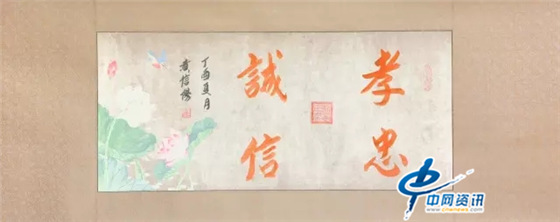 孝忠
誠信
丁酉夏月
黄信陽
中网资讯